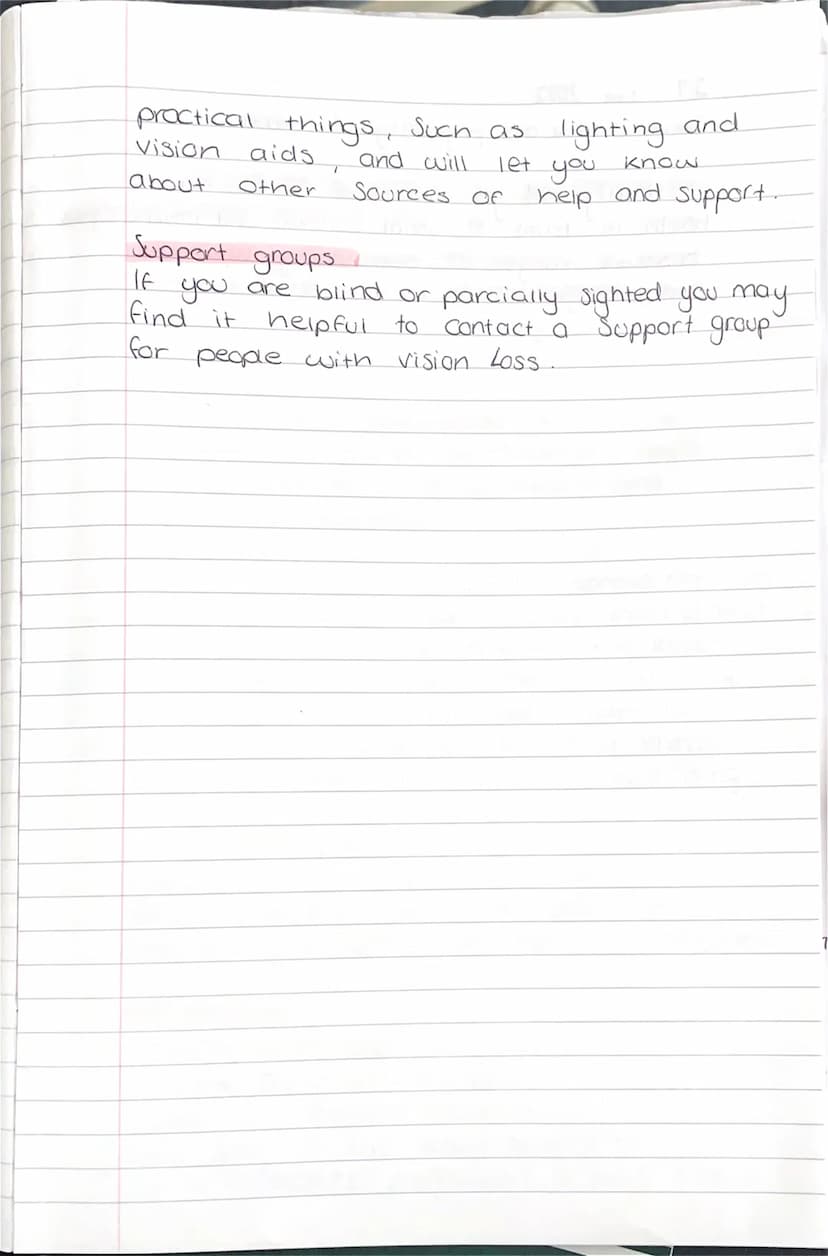 practical things, such as lighting and
vision aids, and will let you know
about other sources of help and support.
Support groups
If you are blind or parcially sighted you may
find it helpful to contact a support group
for people with vision Loss.